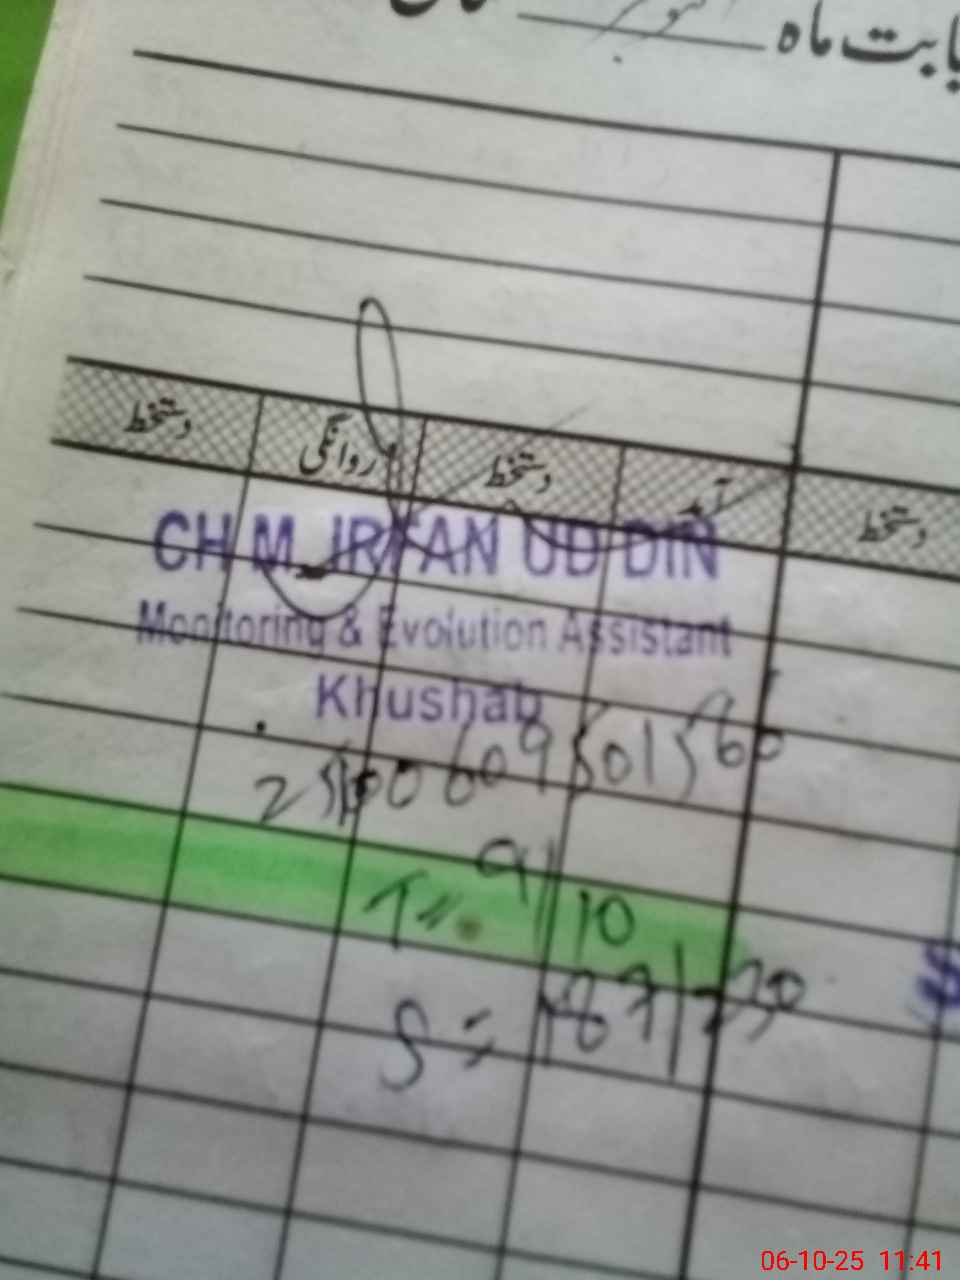 بابت ماہ
دستخط آمد دستخط روانگی دستخط
CH M. IRFAN UD DIN
Monitoring & Evolution Assistant
Khushab
T = 9/10
S = 187/230
06-10-25 11:41